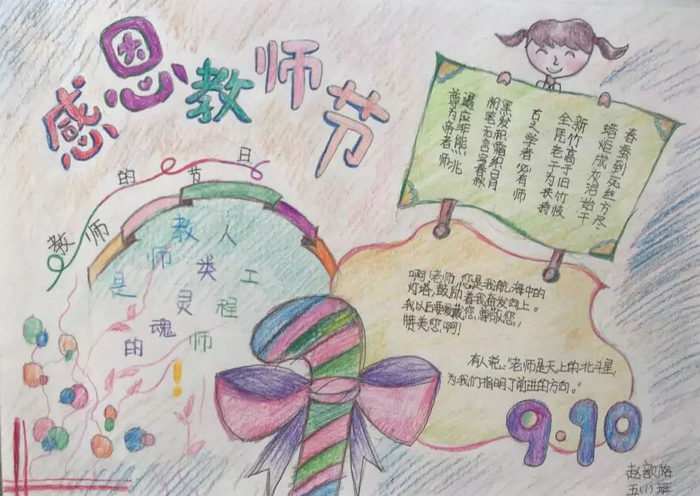 感恩教师节
教师的节日
教师是
人类灵魂的
工程师!
春蚕到死丝方尽
蜡炬成灰泪始干
新竹高于旧竹枝
全凭老干为扶持
古之学者必有师
黑发积霜织日月
粉笔无言写春秋
遇应非熊
尊为帝者师
啊!老师,您是我航海中的
灯塔,鼓励着我奋发向上。
我以后要爱戴您,尊敬您,
赞美您,啊!
有人说:"老师是天上的北斗星,
为我们指明了前进的方向。"
9.10
赵
五(1)班